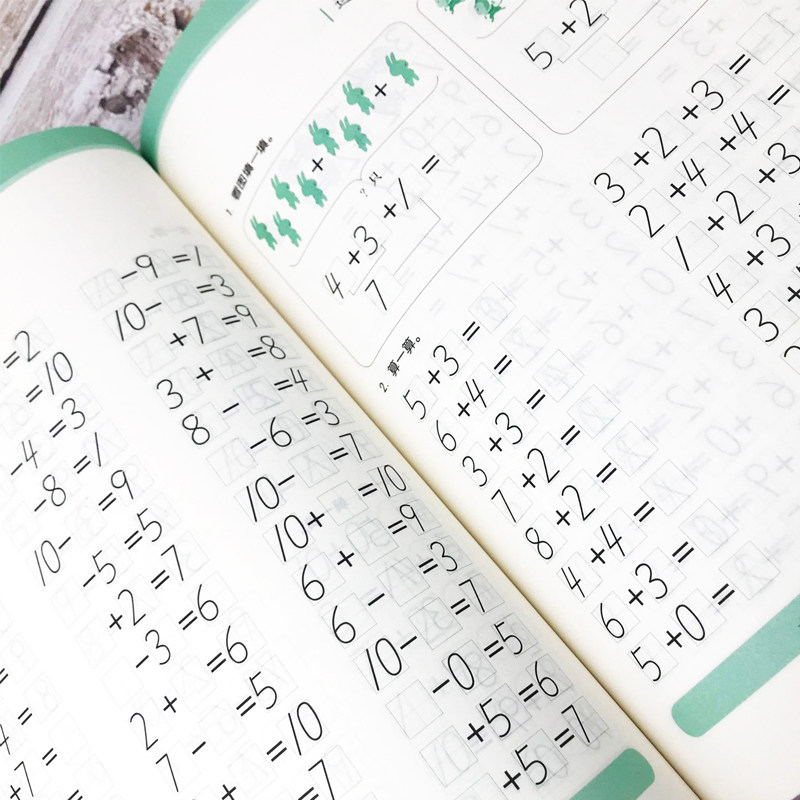 =2
=10
-4 =3
-8 =1
10- =9
-5 =5
+2 =7
-3 =6
2 + =6
7 - =5
+ =10
=7
=
4 =
+7 =
-9 =1
10- =3
+7 =9
3 + =8
8 - =4
-6 =3
10- =7
10+ =10
6 + =9
6 - =3
10- =7
-0 =5
+5 =6
+5 =7
1. 看图填一填。
+ +
? 只
4 +3 +1 =
7
2. 算一算。
5 +3 =
6 +4 =
3 +3 =
7 +2 =
8 +2 =
4 +4 =
6 +3 =
5 +0 =
5 +2
3 +2 +3 =
2 +4 +4 =
1 +2 +3
4 +3
3 +